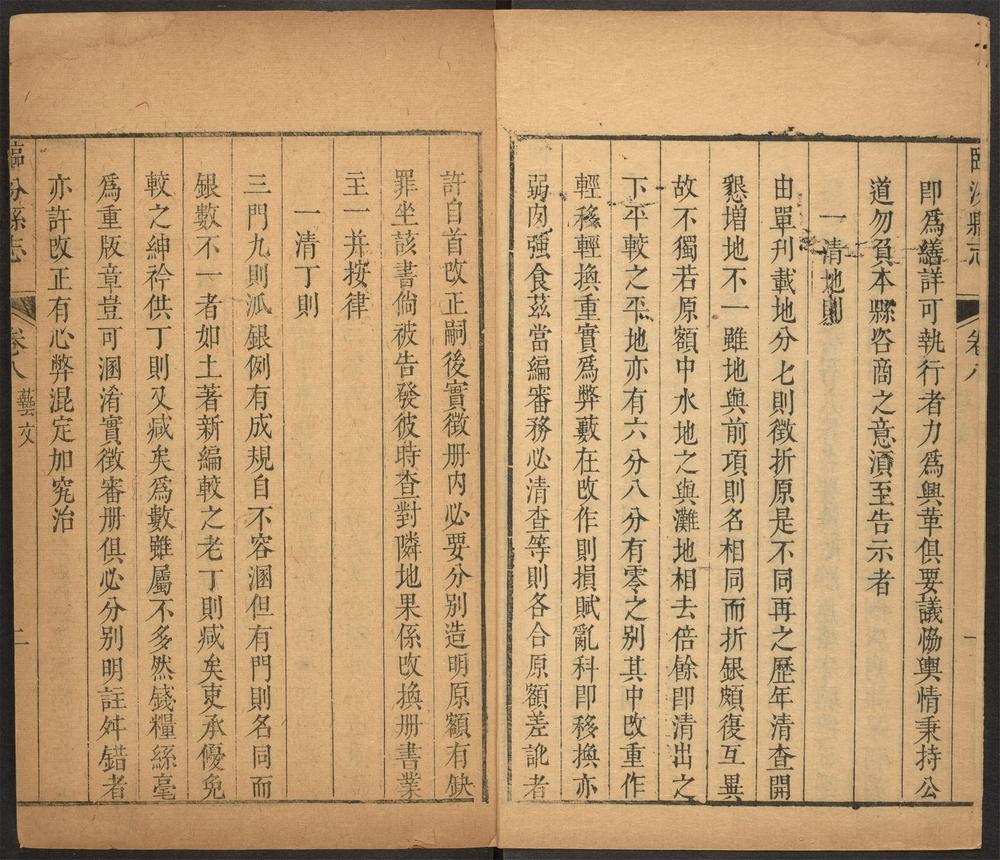 卽爲繕詳可執行者力爲興革俱要議恊輿情秉持公
道勿負本縣咨商之意須至告示者
一清地則
由單刊載地分七則徵折原是不同再之歷年清查開
懇增地不一雖地與前項則名相同而折銀頗復互異
故不獨若原額中水地之與灘地相去倍餘卽清出之
下平較之平地亦有六分八分有零之别其中改重作
輕移輕換重實爲弊藪在改作則損賦亂科卽移換亦
弱肉强食茲當編審務必清查等則各合原額差訛者
許自首改正嗣後實徵册内必要分别造明原額有缺
罪坐該書倘被告發彼時查對隣地果係改換册書業
主一并按律
一清丁則
三門九則派銀例有成規自不容溷但有門則名同而
銀數不一者如土著新編較之老丁則减矣吏承優免
較之紳衿供丁則又减矣爲數雖屬不多然錢糧絲毫
爲重版章豈可溷淆實徵審册俱必分别明註舛錯者
亦許改正有心弊混定加究治
臨汾縣志
卷八
藝文
二